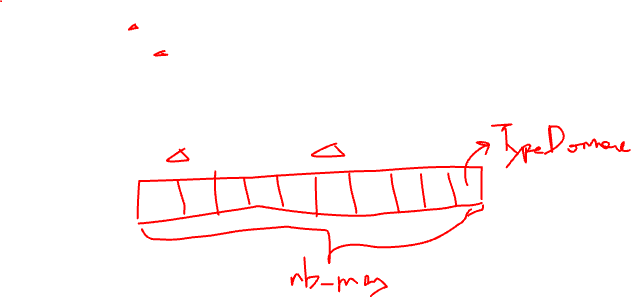 TypeDonnee
nb_max